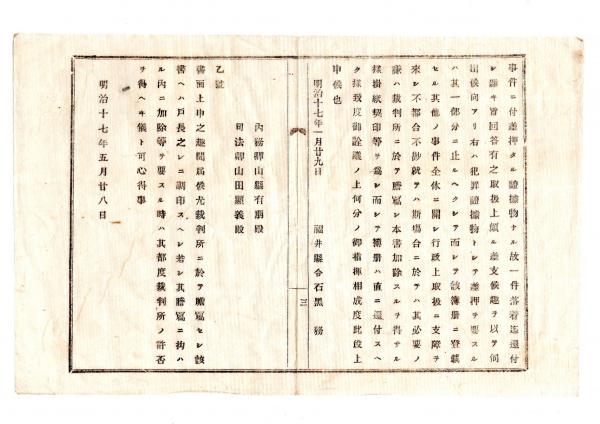 事件ニ付差押タル證據物ナル故一件落着迄還付
シ難キ旨回答有之取扱上頗ル差支候趣ヲ以テ伺
出候向アリ右ハ犯罪證據物トシテ差押ヲ要スル
ハ其一部分ニ止ルヘクシテ而シテ該簿册ニ登載
セル其他ノ事件全体ニ關シ行政上取扱ニ支障ヲ
來シ不都合不尠就テハ斯塲合ニ於テハ其必要ノ
謙ハ裁判所ニ於テ謄寫シ本書加除スルヲ得サル
樣掛紙契印等ヲ爲シ而シテ簿册ハ直ニ還付スヘ
ク樣致度御詮議ノ上何分ノ御指揮相成度此段上
申候也
明治十七年一月廿九日
福井縣令石黑務
内務卿山縣有朋殿
司法卿山田顯義殿
三
乙號
書面上申之趣聞届候尤裁判所ニ於テ謄寫セシ該
書ヘハ戸長之レニ調印スヘシ若シ其謄寫ニ拘ハ
ル内ニ加除等ヲ要スル時ハ其都度裁判所ノ許否
ヲ得ヘキ儀ト可心得事
明治十七年五月廿八日